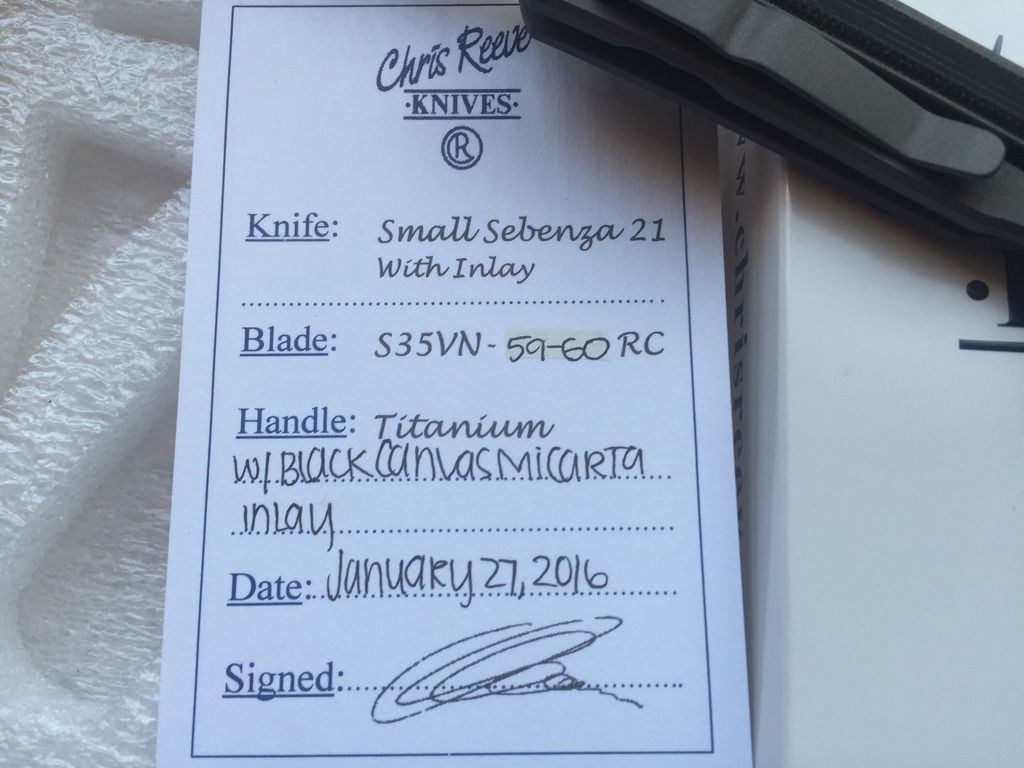 Chris Reeve
·KNIVES·
®
Knife: Small Sebenza 21
With Inlay
Blade: S35VN - 59-60 RC
Handle: Titanium
W/ BLACK CANVAS MICARTA
INLAY
Date: JANUARY 27, 2016
Signed: